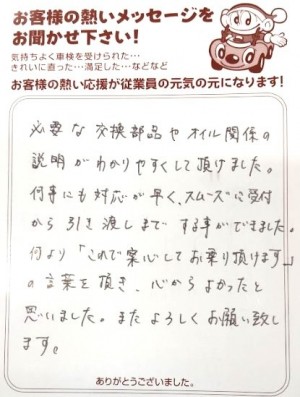 お客様の熱いメッセージを
お聞かせ下さい!
気持ちよく車検を受けられた…
きれいに直った…満足した…などなど
お客様の熱い応援が従業員の元気の元になります!
必要な交換部品やオイル関係の
説明がわかりやすくして頂けました。
何事にも対応が早く、スムーズに受付
から引き渡しまでする事ができました。
何より「これで安心してお乗り頂けます」
の言葉を頂き、心からよかったと
思いました。またよろしくお願い致し
ます。
ありがとうございました。